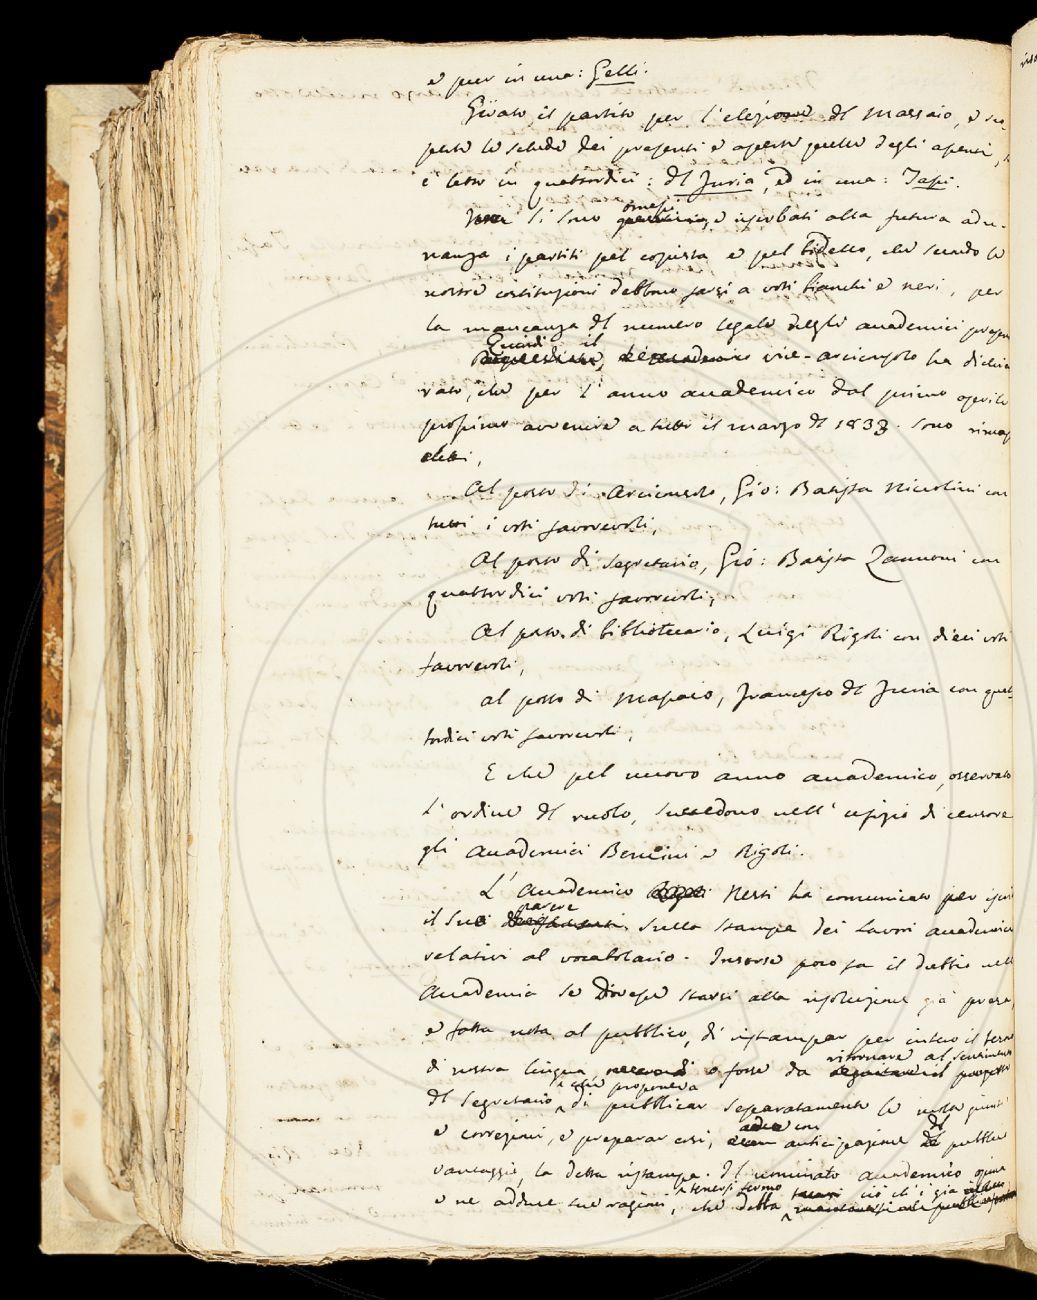 e pur in una: Gelli.
Girato il partito per l'elezione del Massaio, e
perte le schede dei presenti e aperte quelle degli assenti,
è letto in quattordici: del Furia, ed in una: Tassi.
Si sono omessi, e riserbati alla futura adu-
nanza i partiti pel copista e pel bidello, che secondo le
nostre costituzioni debbono farsi a voti bianchi e neri, per
la mancanza del numero legale degli accademici presen
Quindi il vice-arciconsolo ha dichia
rato, che per l'anno accademico dal primo aprile
prossimo avvenire a tutto il marzo del 1833. sono rimas
eletti,
Al posto di Arciconsolo, Gio: Batista Niccolini con
tutti i voti favorevoli,
Al posto di segretario, Gio: Batista Zannoni con
quattordici voti favorevoli,
Al posto di bibliotecario, Luigi Rigoli con dieci voti
favorevoli,
al posto di Massaio, Francesco del Furia con quat-
tordici voti favorevoli,
E che pel nuovo anno accademico, osservato
l'ordine del ruolo, succedono nell'ufizio di censore
gli Accademici Bencini e Rigoli.
L'Accademico Nesti ha comunicato per iscri
il suo parere sulla stampa dei lavori accademici
relativi al vocabolario. Insorse poco fa il dubbio nell
Accademia se dovesse starsi alla risoluzione già presa,
e fatta nota al pubblico, di ristampar per intero il tesoro
di nostra lingua, o forse da ritornare al progetto
del segretario, che proponeva di pubblicar separatamente le nostre giunte
e correzioni, e preparar così, con anticipazione del pubblico
vantaggio, la detta ristampa. Il nominato accademico opina
e ne adduce sue ragioni, che debba tenersi fermo ciò che già